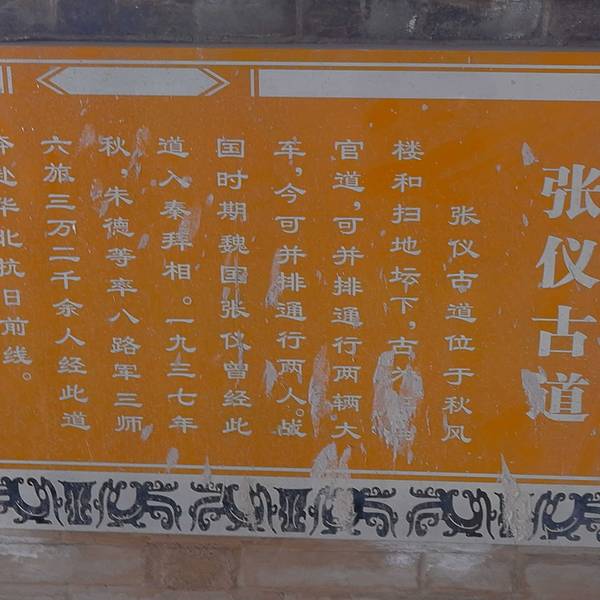 张仪古道
张仪古道位于秋风
楼和扫地坛下，古为
官道，可并排通行两辆大
车，今可并排通行两人。战
国时期魏国张仪曾经此
道入秦拜相。一九三七年
秋，朱德等率八路军三师
六旅三万二千余人经此道
奔赴华北抗日前线。